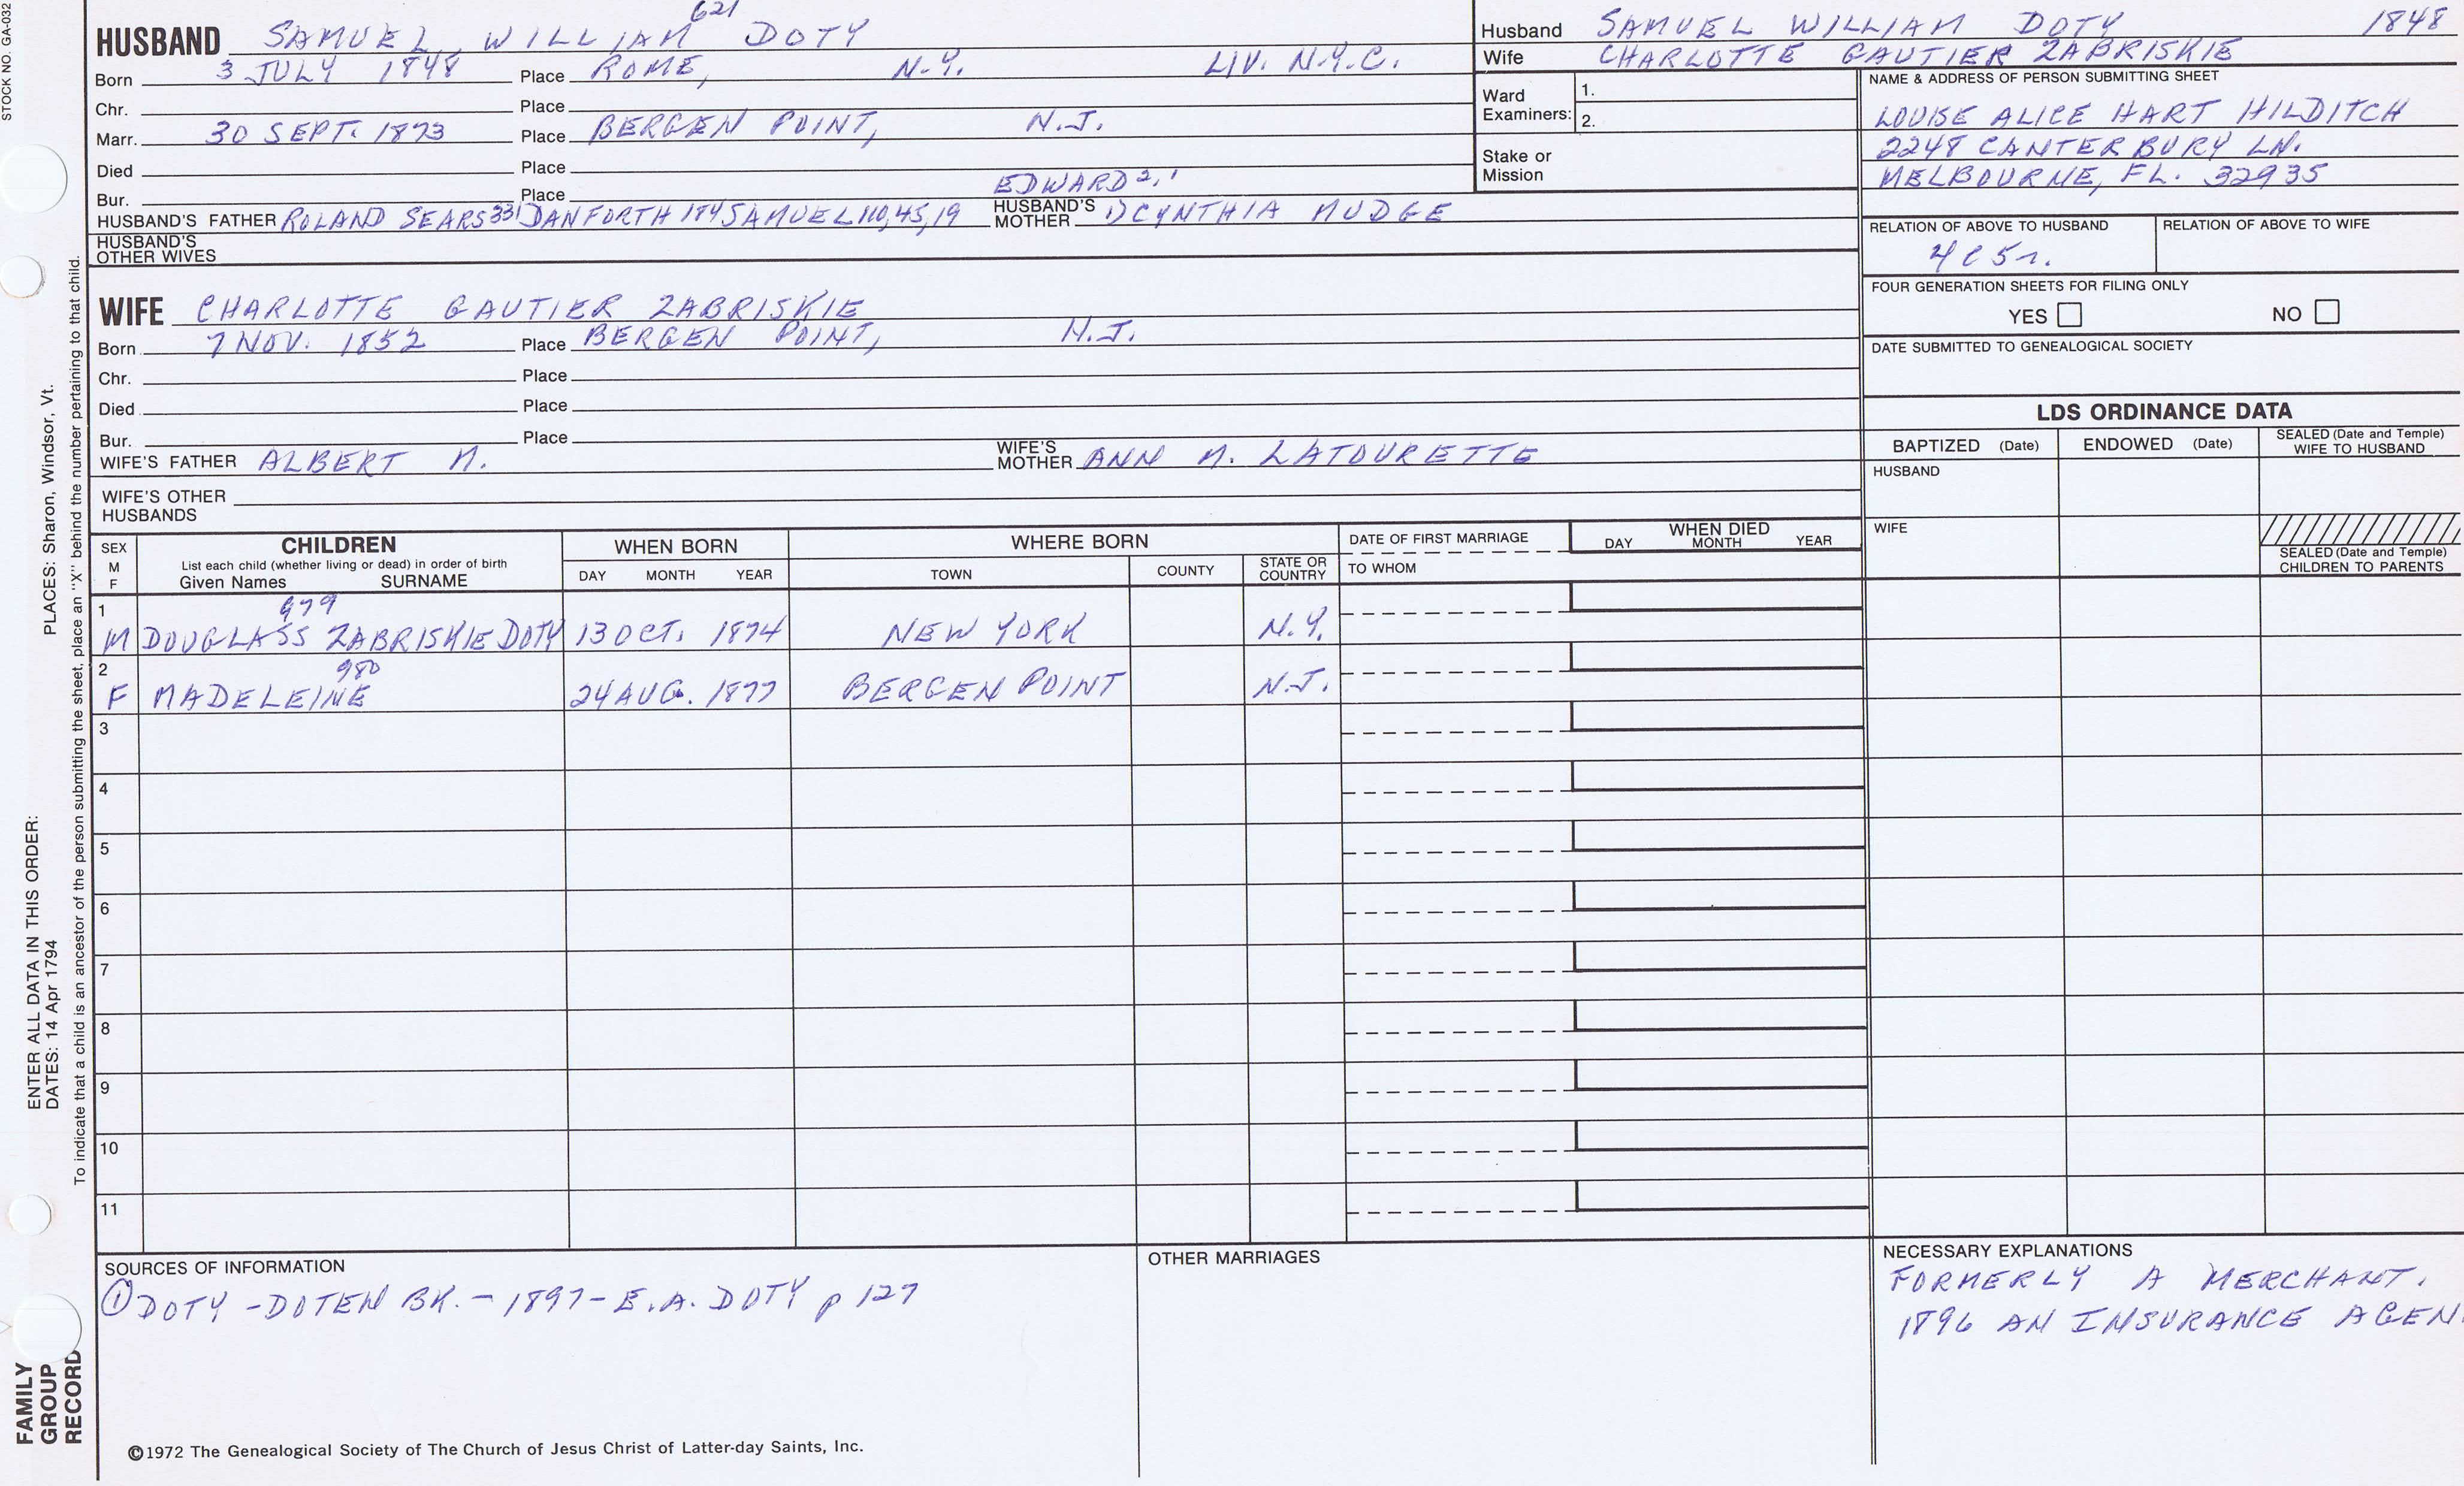 STOCK NO. GA-032
621
HUSBAND SAMUEL WILLIAM DOTY
Born 3 JULY 1848 Place ROME, N.Y. LIV. N.Y.C.
Chr. Place
Marr. 30 SEPT. 1873 Place BERGEN POINT, N.J.
Died Place
Bur. Place EDWARD 2, 1
HUSBAND'S FATHER ROLAND SEARS 331 DANFORTH 184 SAMUEL 110, 45, 19 HUSBAND'S MOTHER 1) CYNTHIA MUDGE
HUSBAND'S OTHER WIVES
WIFE CHARLOTTE GAUTIER ZABRISKIE
Born 7 NOV. 1852 Place BERGEN POINT, N.J.
Chr. Place
Died Place
Bur. Place
WIFE'S FATHER ALBERT M. WIFE'S MOTHER ANN M. LATOURETTE
WIFE'S OTHER HUSBANDS
Husband SAMUEL WILLIAM DOTY 1848
Wife CHARLOTTE GAUTIER ZABRISKIE
Ward Examiners: 1.
2.
Stake or Mission
NAME & ADDRESS OF PERSON SUBMITTING SHEET
LOUISE ALICE HART HILDITCH
2248 CANTERBURY LN.
MELBOURNE, FL. 32935
RELATION OF ABOVE TO HUSBAND RELATION OF ABOVE TO WIFE
4C5r.
FOUR GENERATION SHEETS FOR FILING ONLY
YES NO
DATE SUBMITTED TO GENEALOGICAL SOCIETY
LDS ORDINANCE DATA
BAPTIZED (Date) ENDOWED (Date) SEALED (Date and Temple) WIFE TO HUSBAND
HUSBAND
WIFE
SEALED (Date and Temple) CHILDREN TO PARENTS
SEX M F CHILDREN WHEN BORN WHERE BORN DATE OF FIRST MARRIAGE WHEN DIED
List each child (whether living or dead) in order of birth
Given Names SURNAME DAY MONTH YEAR TOWN COUNTY STATE OR COUNTRY TO WHOM DAY MONTH YEAR
1 979
M DOUGLASS ZABRISKIE DOTY 13 OCT. 1874 NEW YORK N.Y.
2 980
F MADELEINE 24 AUG. 1877 BERGEN POINT N.J.
3
4
5
6
7
8
9
10
11
SOURCES OF INFORMATION
① DOTY-DOTEN BK. - 1897 - E.A. DOTY p 127
OTHER MARRIAGES
NECESSARY EXPLANATIONS
FORMERLY A MERCHANT.
1896 AN INSURANCE AGEN
©1972 The Genealogical Society of The Church of Jesus Christ of Latter-day Saints, Inc.
ENTER ALL DATA IN THIS ORDER:
DATES: 14 Apr 1794 PLACES: Sharon, Windsor, Vt.
To indicate that a child is an ancestor of the person submitting the sheet, place an "X" behind the number pertaining to that child.
FAMILY
GROUP
RECORD